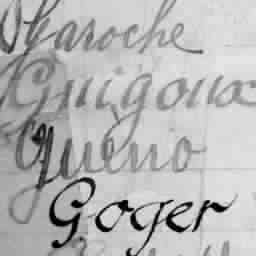 Garoche
Guigoux
Guerio
Goger